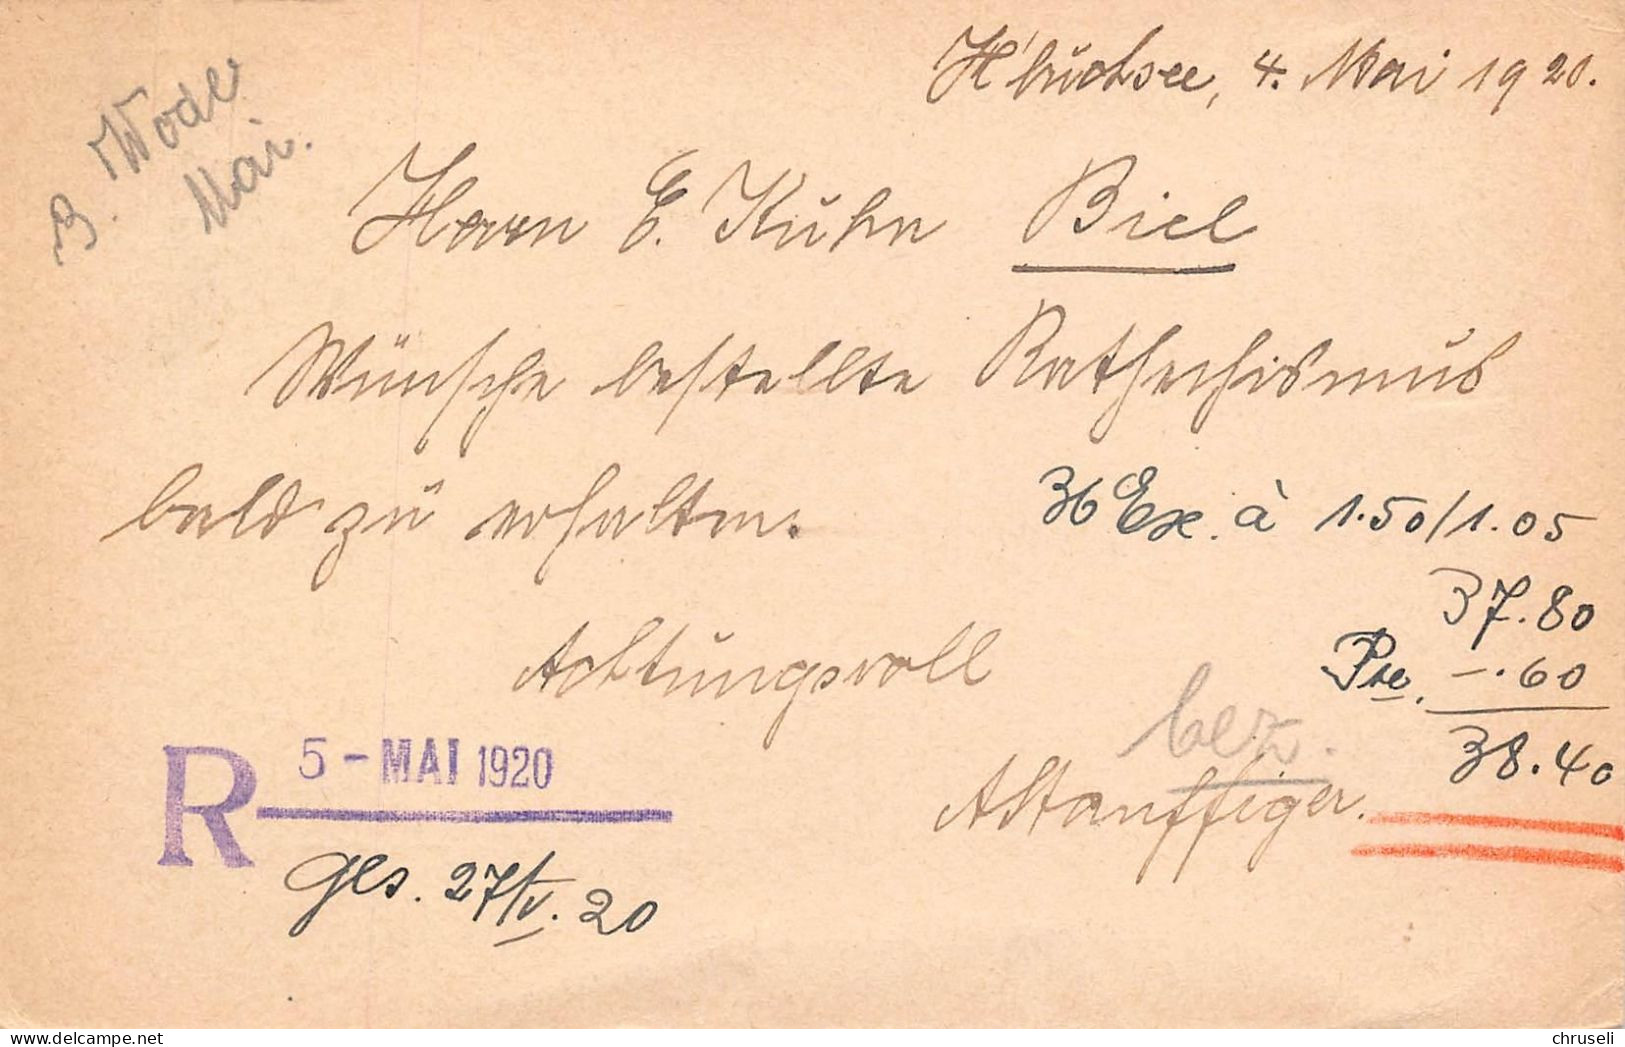 H'buchsee, 4. Mai 1920.
3. Woche
Mai.
Herrn E. Kuhn Biel
Wünsche bestellte Kathechismus
bald zu erhalten.
36 Ex. à 1.50/1.05
37.80
Pte. -.60
38.40
Achtungsvoll
bez.
R 5 - MAI 1920
ges. 27/V. 20
chruseli